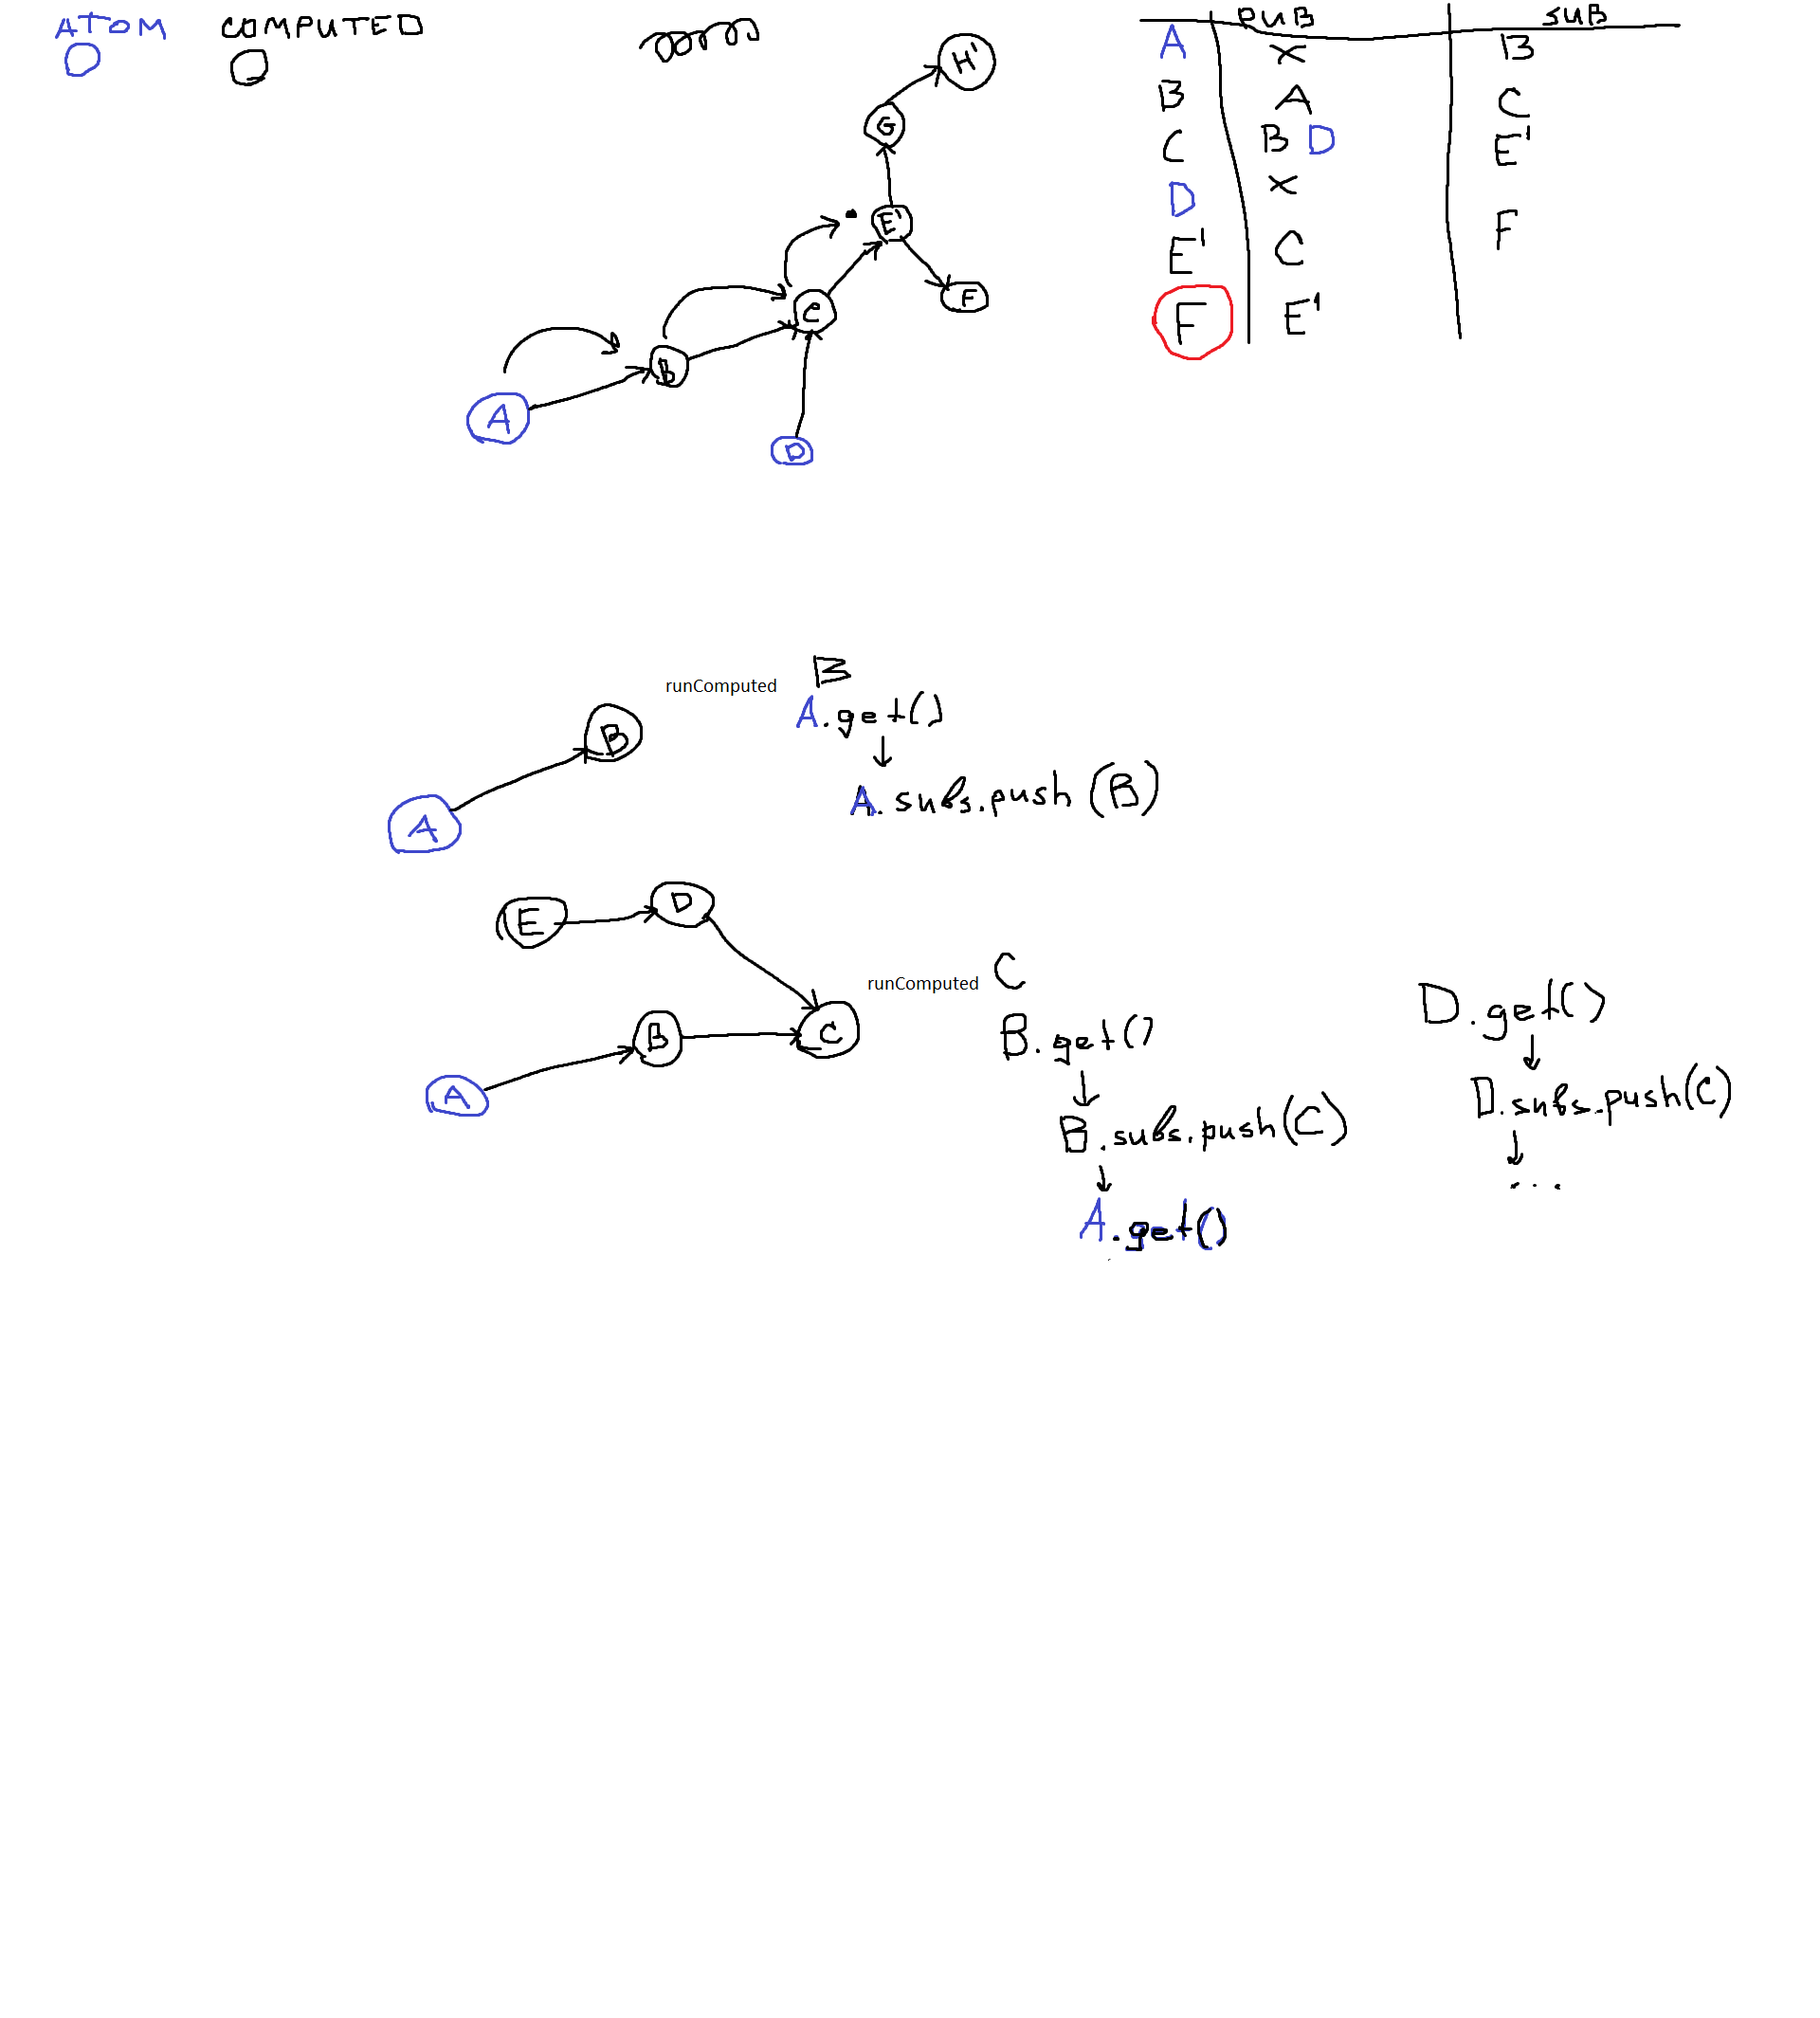 ATOM COMPUTED
PUB SUB
A X B
B A C
C B D E'
D X
E' C F
F E'
H'
G
E'
F
C
B
A
D
runComputed B
A.get()
A.subs.push(B)
B
A
E D
runComputed C
B.get()
B.subs.push(C)
A.get()
D.get()
D.subs.push(C)
...
B C
A